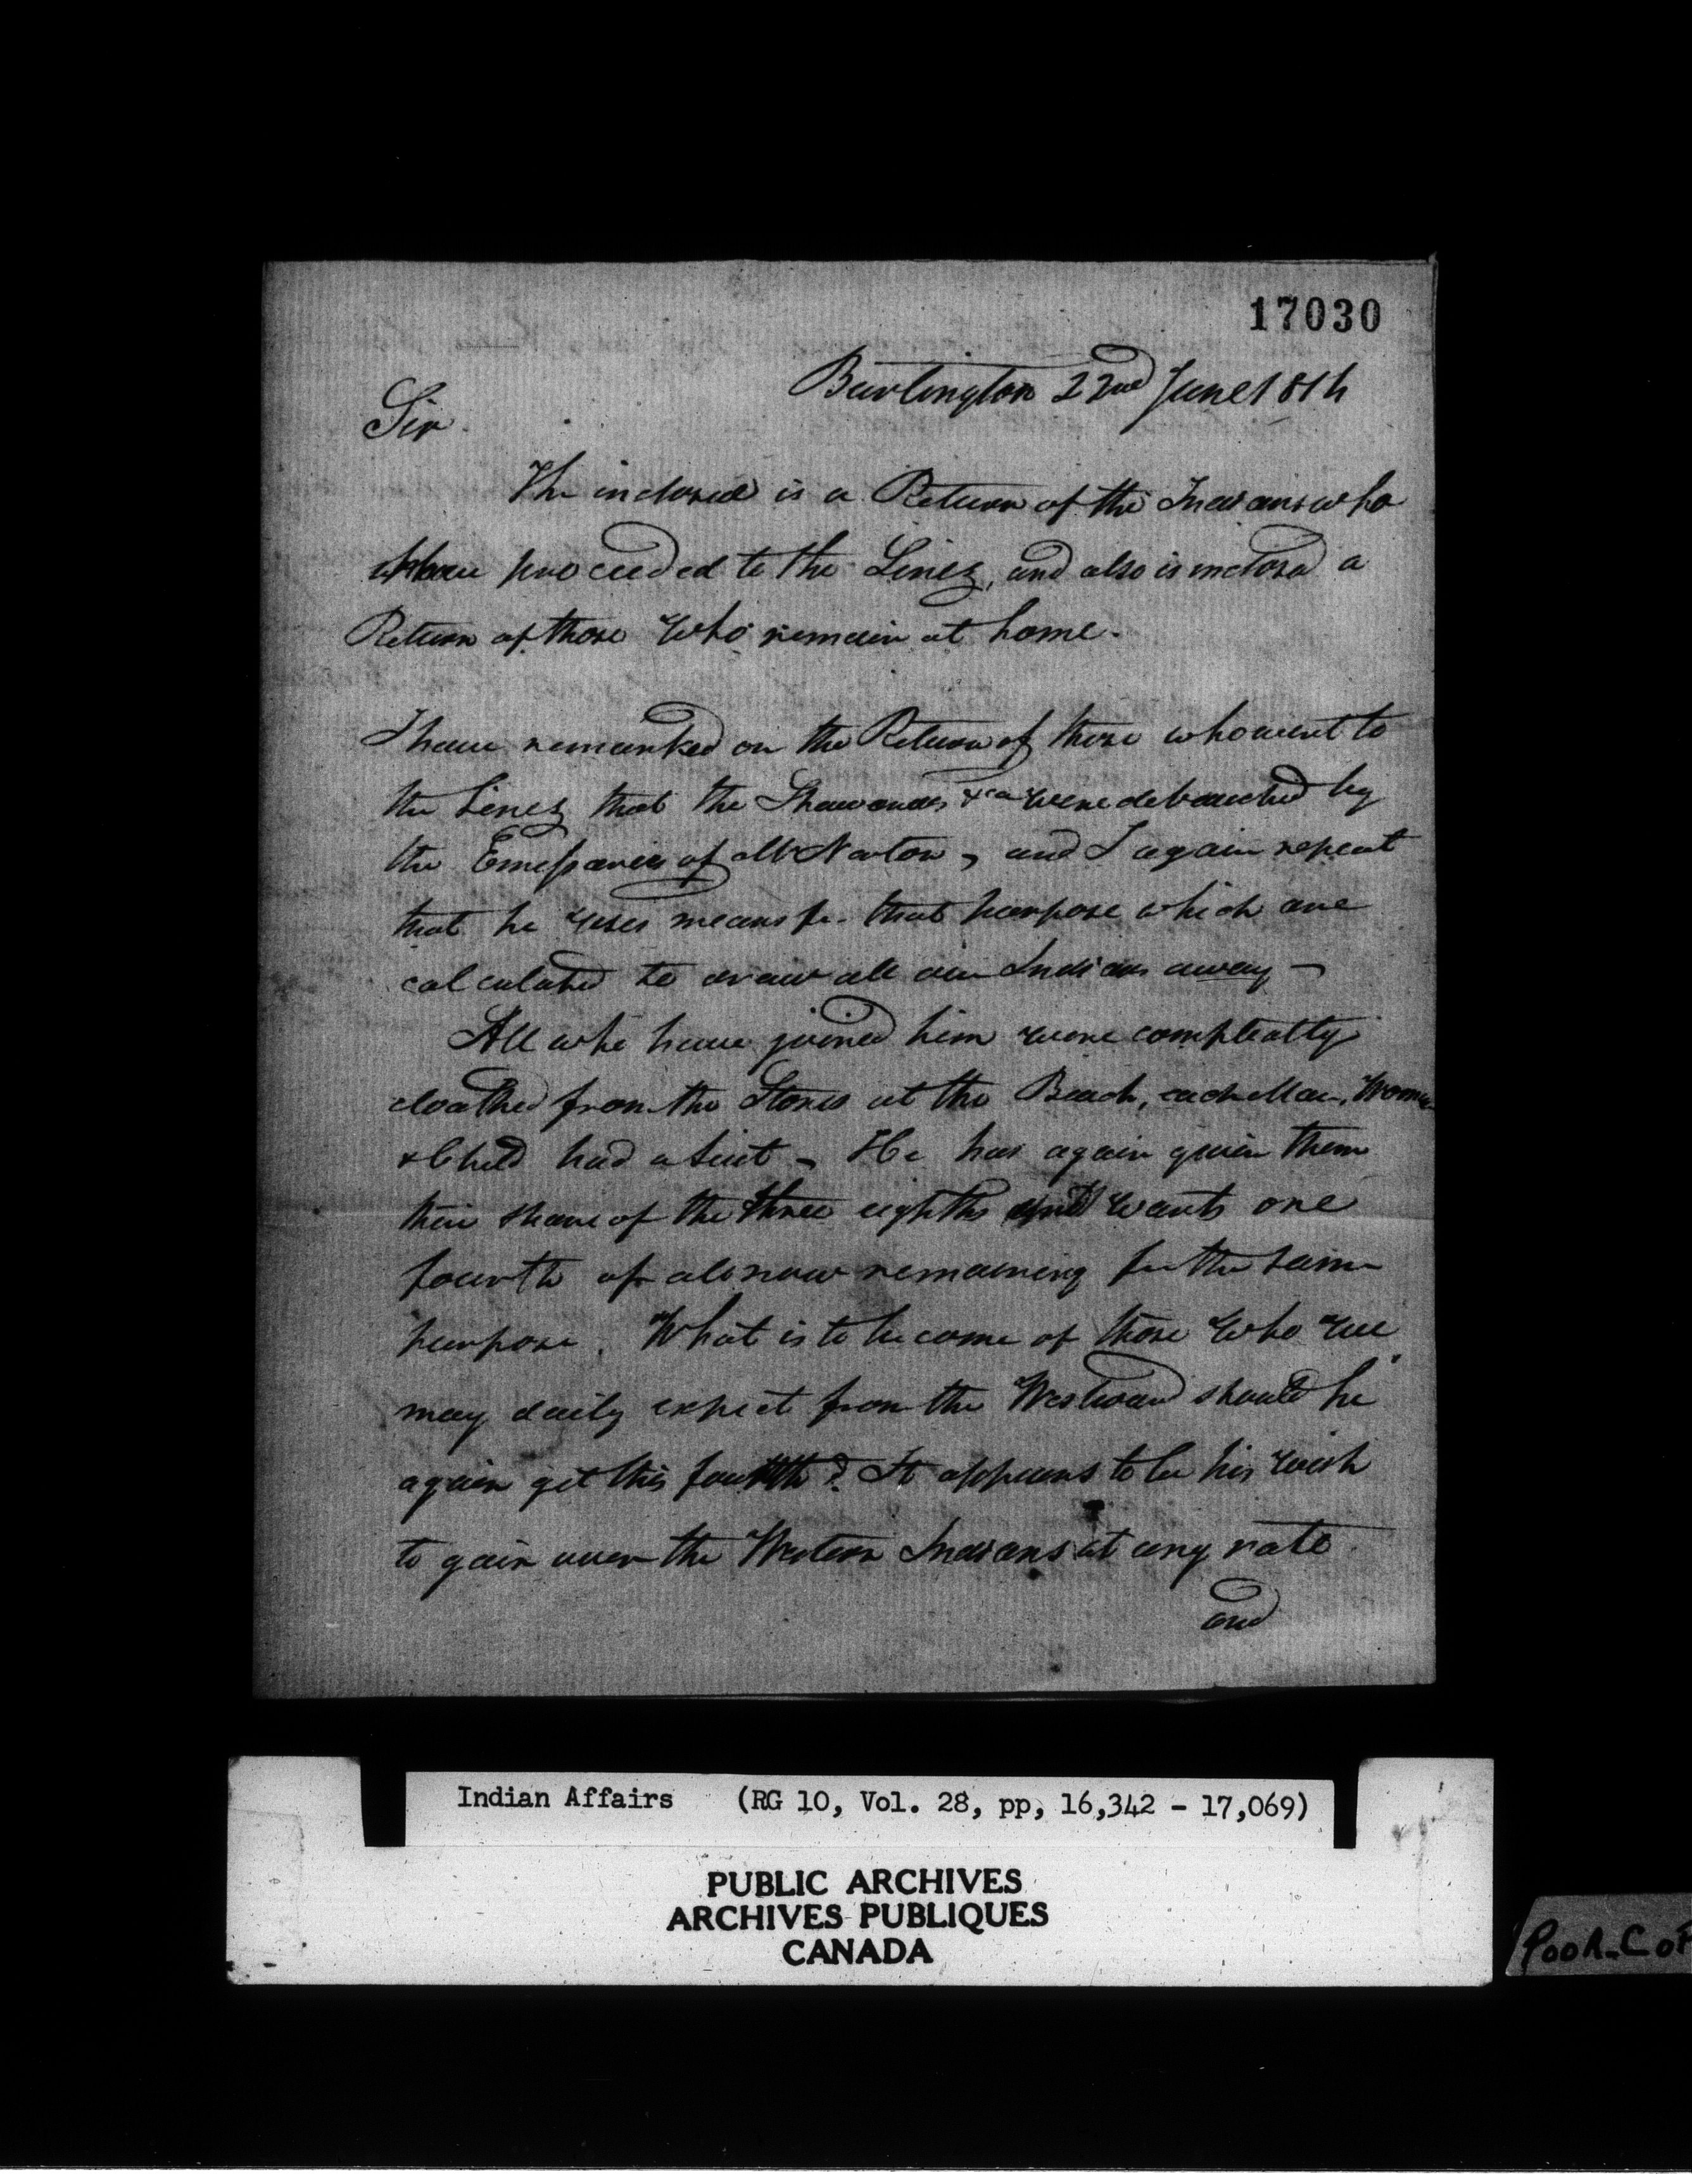 17030
Burlington 22nd June 1814
Sir
The inclosed is a Return of the Indians who
have proceeded to the Lines, and also is inclosed a
Return of those who remain at home.
I have remarked on the Return of those who went to
the Lines that the Shawanoes &ca were debauched by
the Emissaries of Mr Norton, and I again repeat
that he uses means for that purpose which are
calculated to draw all our Indians away –
All who have joined him were compleatly
cloathed from the Stores at the Beach, each Man, Woman
& Child had a suit – He has again given them
their share of the three eighths and wants one
fourth of all now remaining for the same
purpose. What is to become of those who we
may daily expect from the Westward should he
again get this fourth? It appears to be his wish
to gain over the Western Indians at any rate
and
Indian Affairs (RG 10, Vol. 28, pp, 16,342 - 17,069)
PUBLIC ARCHIVES
ARCHIVES PUBLIQUES
CANADA
POOR-COP